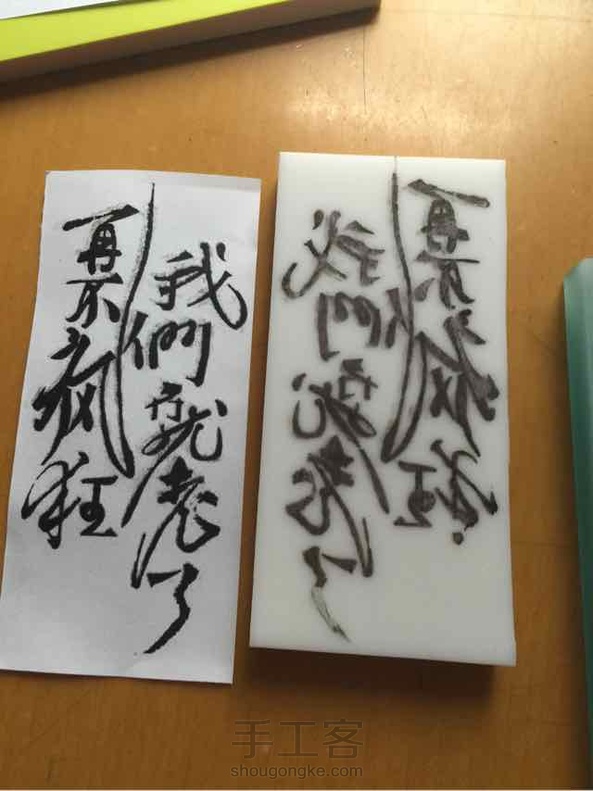 再不疯狂
我們就老了
再不疯狂
我們就老了
手工客
shougongke.com